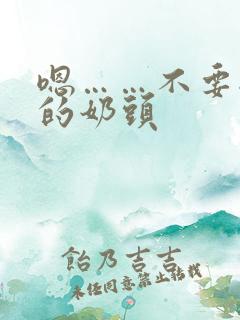 嗯……不要
的奶頭
飴乃吉吉
未经同意禁止转载